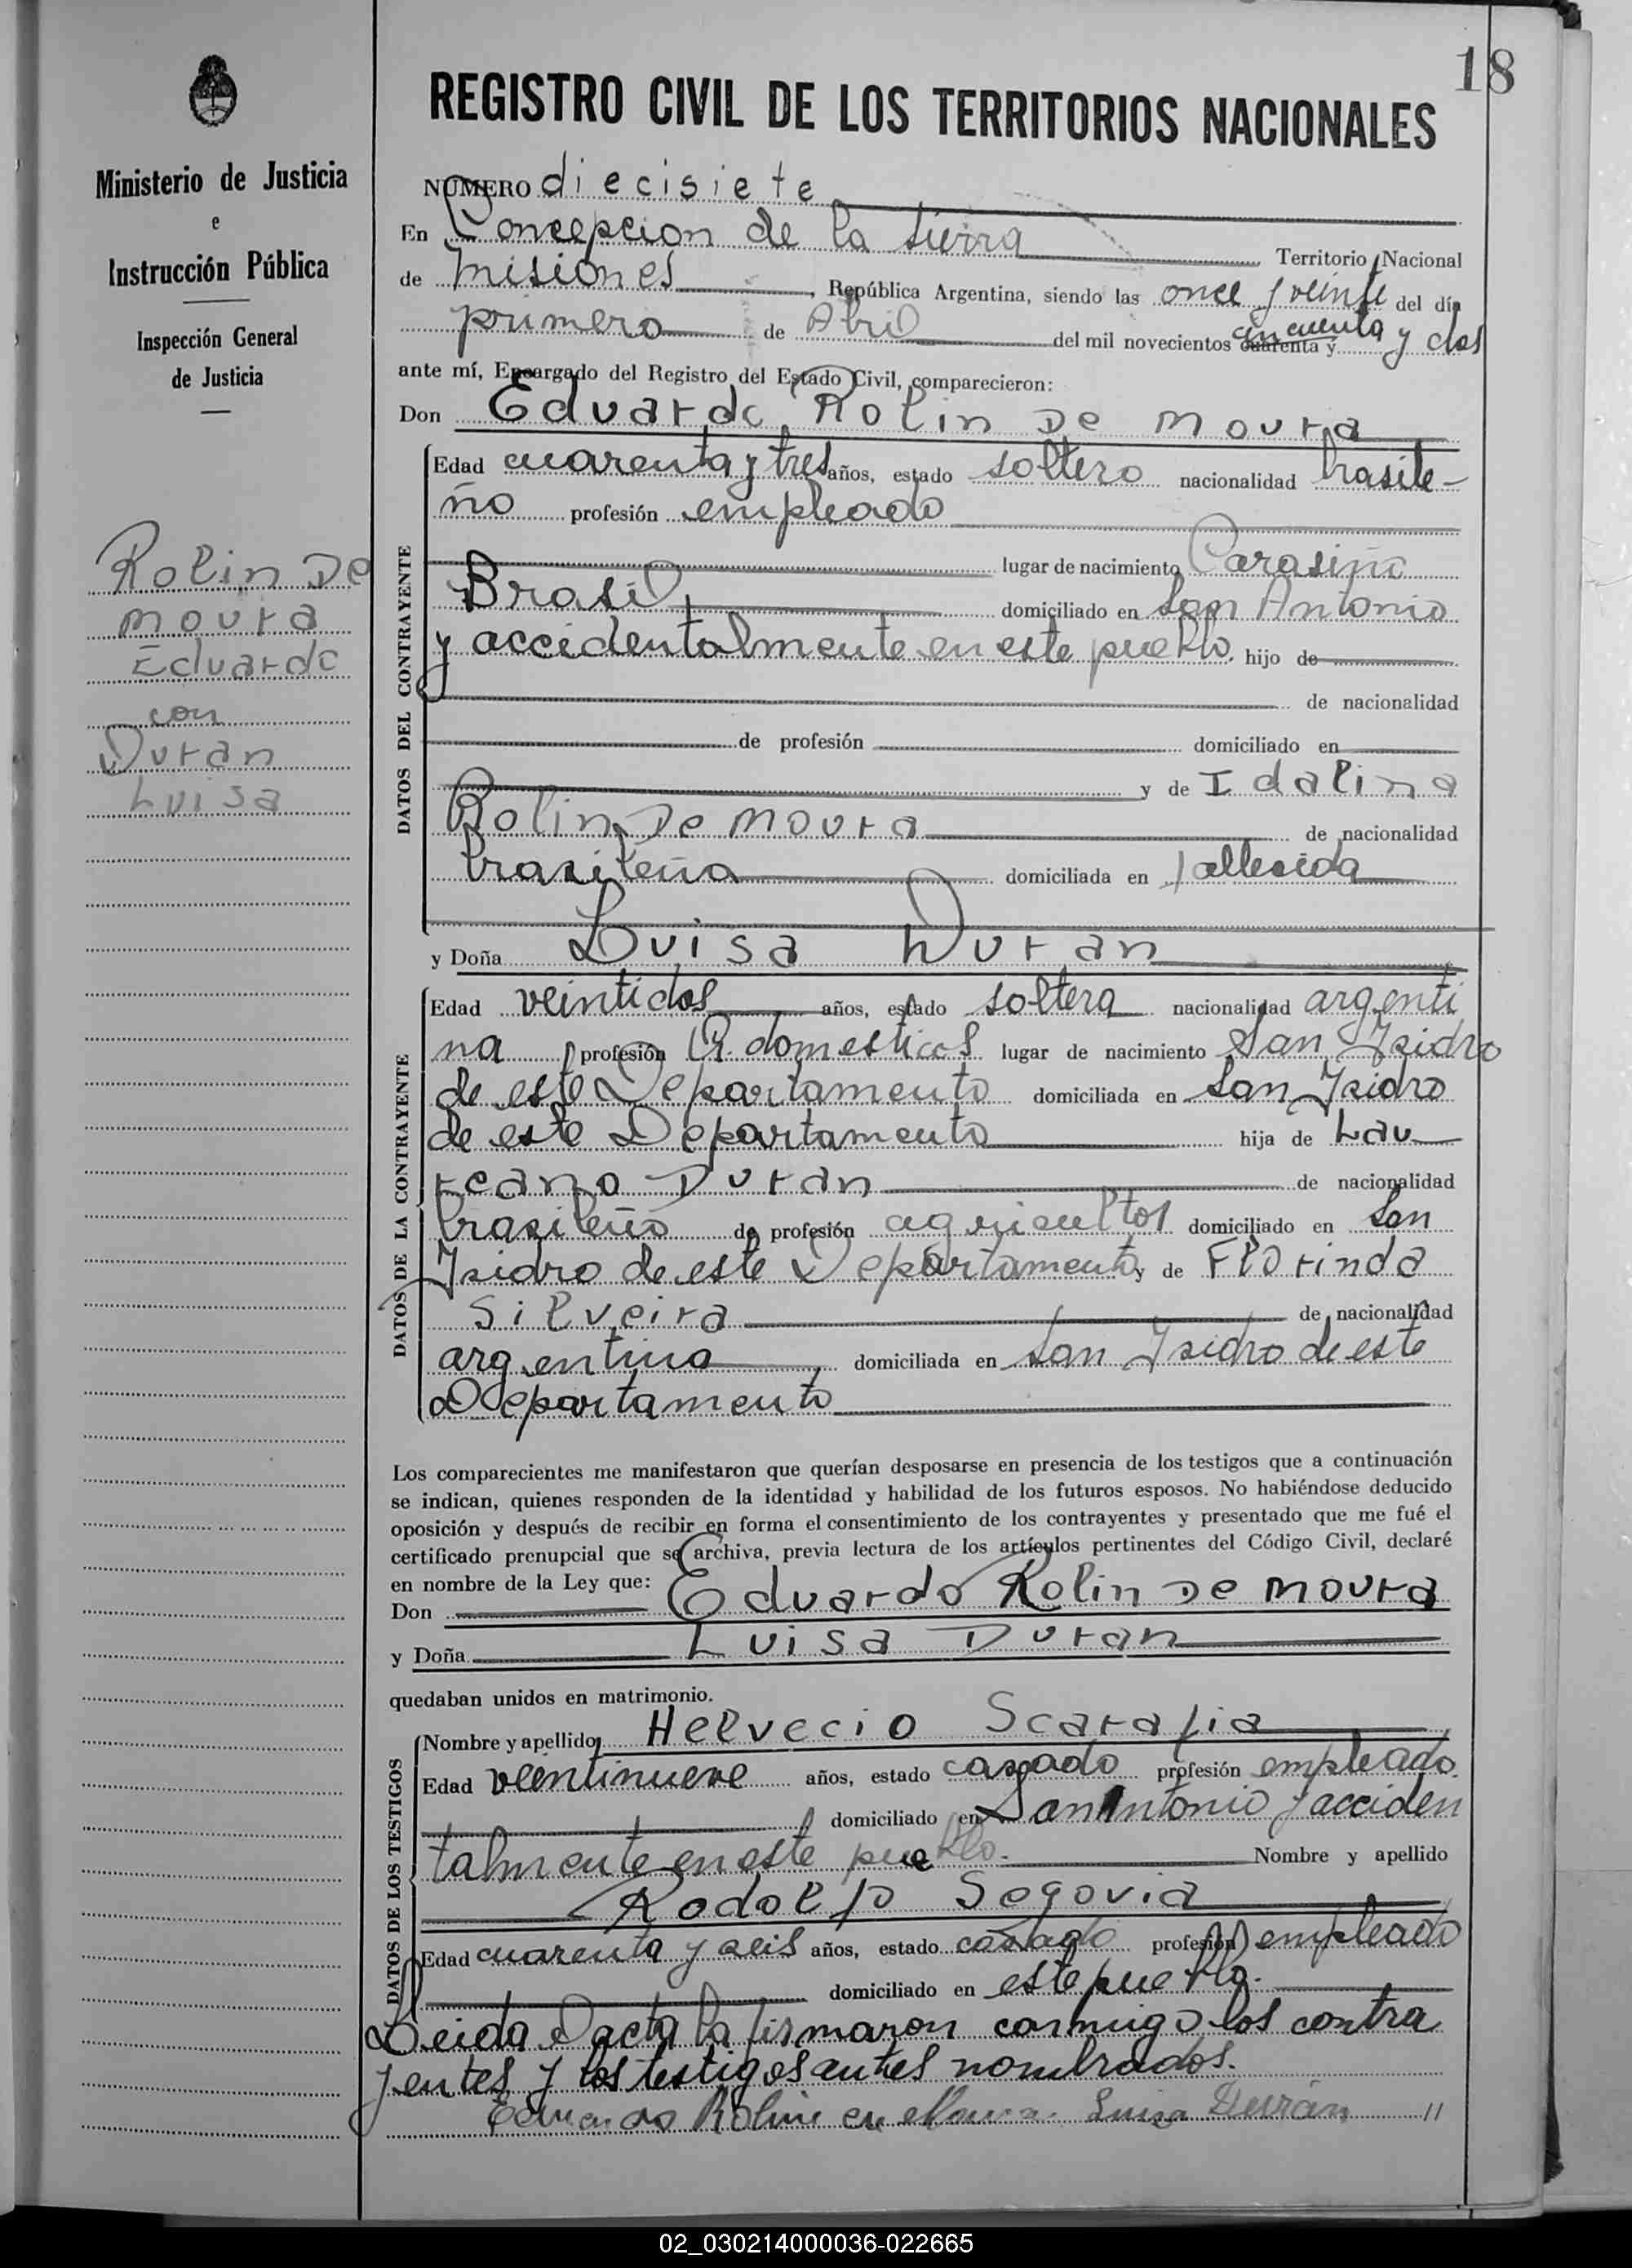 18
REGISTRO CIVIL DE LOS TERRITORIOS NACIONALES
Ministerio de Justicia
e
Instrucción Pública
Inspección General
de Justicia
Rolin De
Moura
Eduardo
con
Duran
Luisa
NÚMERO diecisiete
En Concepcion de la Sierra Territorio Nacional
de Misiones, República Argentina, siendo las once y veinte del día
primero de Abril del mil novecientos cuarenta y cincuenta y dos
ante mí, Encargado del Registro del Estado Civil, comparecieron:
Don Eduardo Rolin De Moura
DATOS DEL CONTRAYENTE
Edad cuarenta y tres años, estado soltero nacionalidad brasile-
ño profesión empleado
lugar de nacimiento Carasiño
Brasil domiciliado en San Antonio
y accidentalmente en este pueblo. hijo de
de nacionalidad
de profesión domiciliado en
y de Idalina
Rolin De Moura de nacionalidad
brasileña domiciliada en fallecida
y Doña Luisa Duran
DATOS DE LA CONTRAYENTE
Edad veintidos años, estado soltera nacionalidad argenti
na profesión Q. domesticos lugar de nacimiento San Isidro
de este Departamento domiciliada en San Isidro
de este Departamento hija de Lau
reano Duran de nacionalidad
brasileño de profesión agricultor domiciliado en San
Isidro de este Departamento y de Florinda
Silveira de nacionalidad
argentina domiciliada en San Isidro de este
Departamento
Los comparecientes me manifestaron que querían desposarse en presencia de los testigos que a continuación
se indican, quienes responden de la identidad y habilidad de los futuros esposos. No habiéndose deducido
oposición y después de recibir en forma el consentimiento de los contrayentes y presentado que me fué el
certificado prenupcial que se archiva, previa lectura de los artículos pertinentes del Código Civil, declaré
en nombre de la Ley que:
Don Eduardo Rolin De Moura
y Doña Luisa Duran
quedaban unidos en matrimonio.
DATOS DE LOS TESTIGOS
Nombre y apellido Helvecio Scarafia
Edad veintinueve años, estado casado profesión empleado
domiciliado en San Antonio y acciden
talmente en este pueblo. Nombre y apellido
Rodolfo Segovia
Edad cuarenta y seis años, estado casado profesión empleado
domiciliado en este pueblo.
Leida Dacta la firmaron conmigo los contra
yentes y los testigos antes nombrados.
Eduardo Rolin Luisa Durán //
02_030214000036-022665